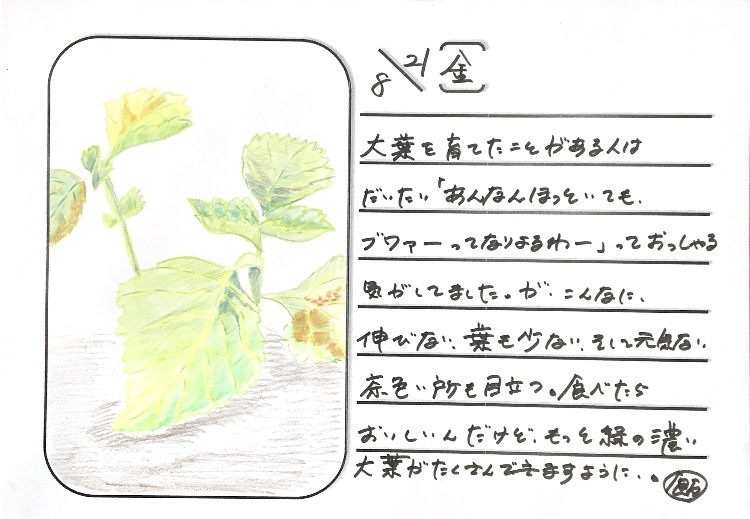 8/21(金)
大葉を育てたことがある人は
だいたい「あんなんほっといても、
ブワァーってなりよるわー」っておっしゃる
気がしてました。が、こんなに、
伸びない、葉も少ない、そして元気ない
茶色い所も目立つ。食べたら
おいしいんだけど、もっと緑の濃い
大葉がたくさんできますように。